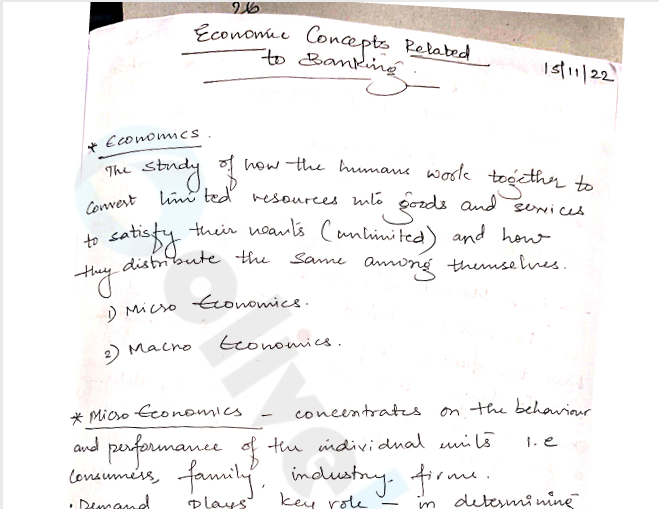 26
Economic Concepts Related
to Banking
15/11/22
* Economics.
The study of how the humans work together to
Convert limited resources into goods and services
to satisfy their wants (unlimited) and how
they distribute the same among themselves.
1) Micro Economics.
2) Macro Economics.
* Micro Economics – concentrates on the behaviour
and performance of the individual units i.e
Consumers, family, industry, firms.
• Demand plays key role – in determining